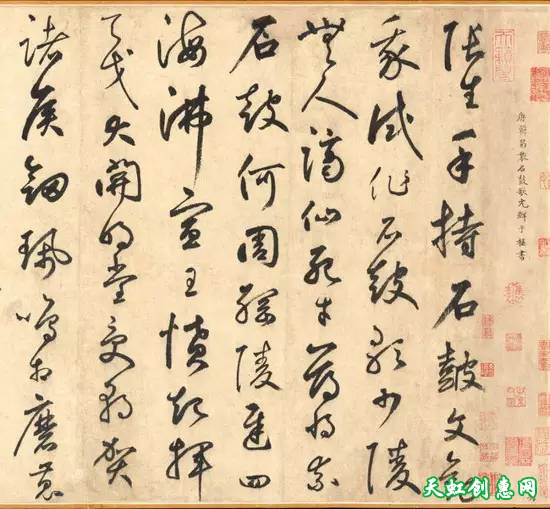 唐韓昌黎石鼓歌元鮮于樞書
張生手持石鼓文勸
我試作石鼓歌少陵
無人謫仙死才薄將奈
石鼓何周綱陵遲四
海沸宣王憤起揮
天戈大開明堂受朝賀
諸侯劍珮鳴相磨蒐
天虹创惠网